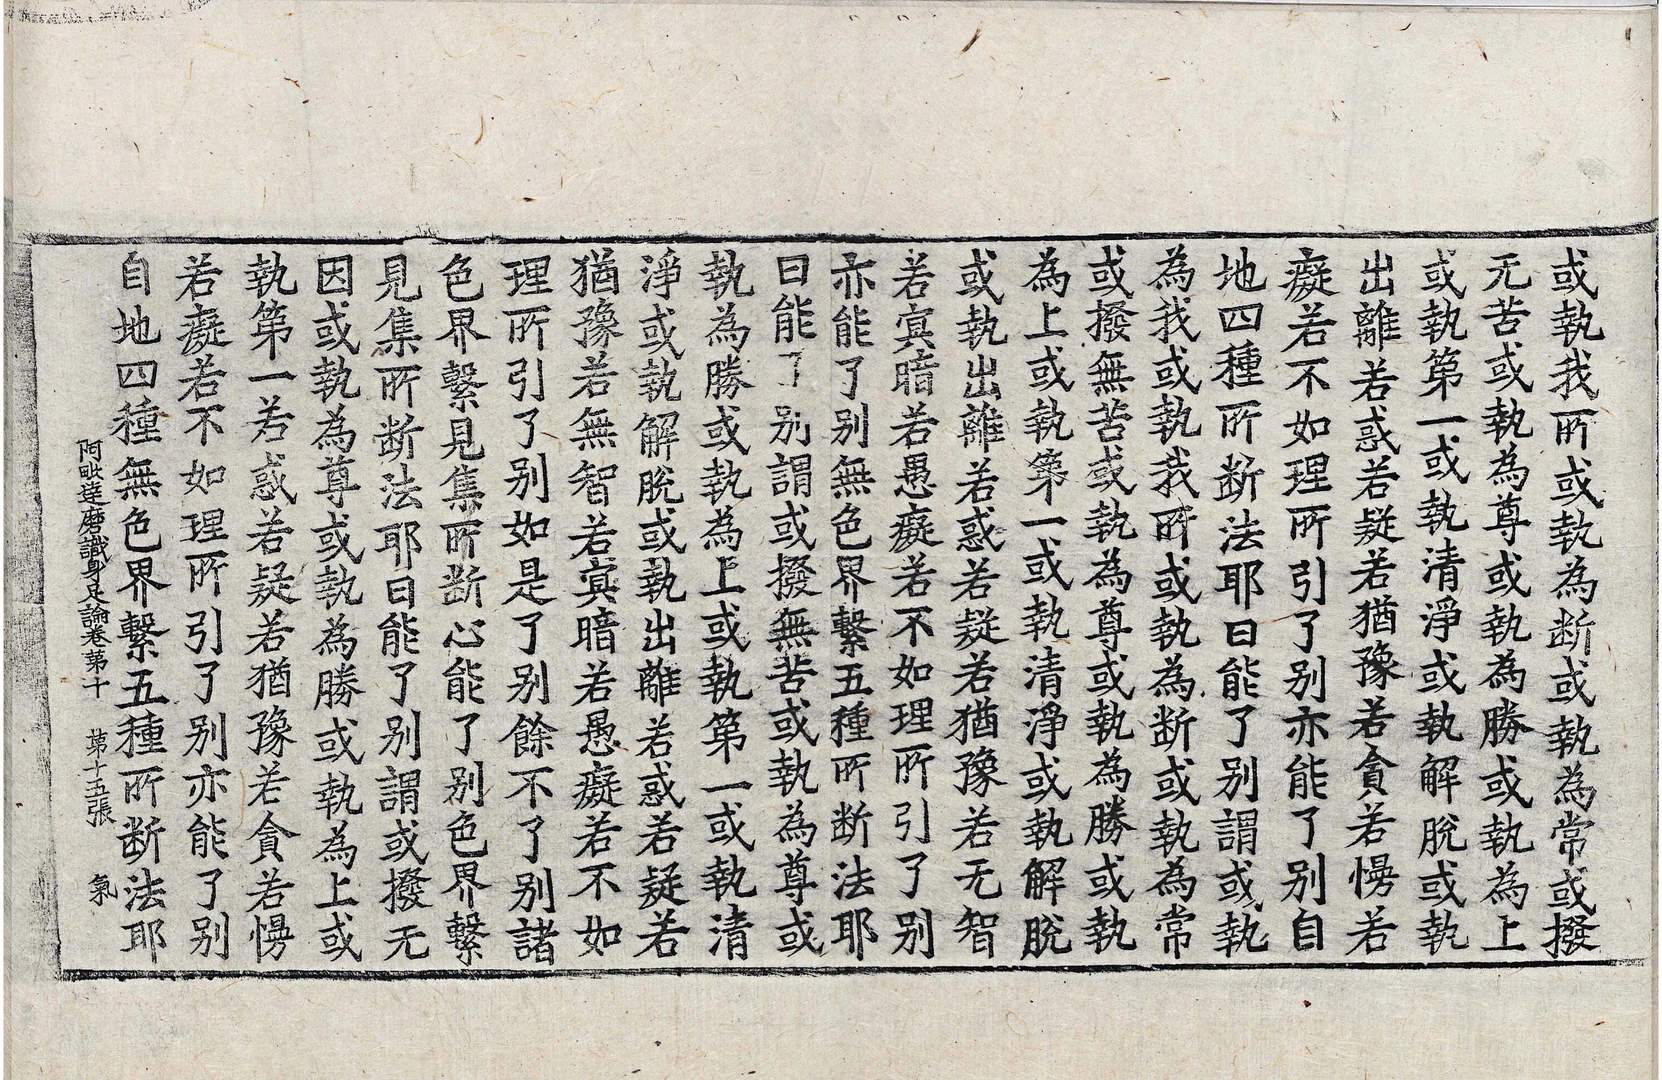 或執我所或執為断或執為常或撥
无苦或執為尊或執為勝或執為上
或執第一或執清淨或執解脫或執
出離若惑若疑若猶豫若貪若慢若
癡若不如理所引了别亦能了别自
地四種所断法耶曰能了别謂或執
為我或執我所或執為断或執為常
或撥無苦或執為尊或執為勝或執
為上或執第一或執清淨或執解脫
或執出離若惑若疑若猶豫若无智
若㝠暗若愚癡若不如理所引了别
亦能了别無色界繫五種所断法耶
曰能了别謂或撥無苦或執為尊或
執為勝或執為上或執第一或執清
淨或執解脫或執出離若惑若疑若
猶豫若無智若㝠暗若愚癡若不如
理所引了别如是了别餘不了别諸
色界繫見集所断心能了别色界繫
見集所断法耶曰能了别謂或撥无
因或執為尊或執為勝或執為上或
執第一若惑若疑若猶豫若貪若慢
若癡若不如理所引了别亦能了别
自地四種無色界繫五種所断法耶
阿毗達磨識身足論卷第十 第十五張 氣